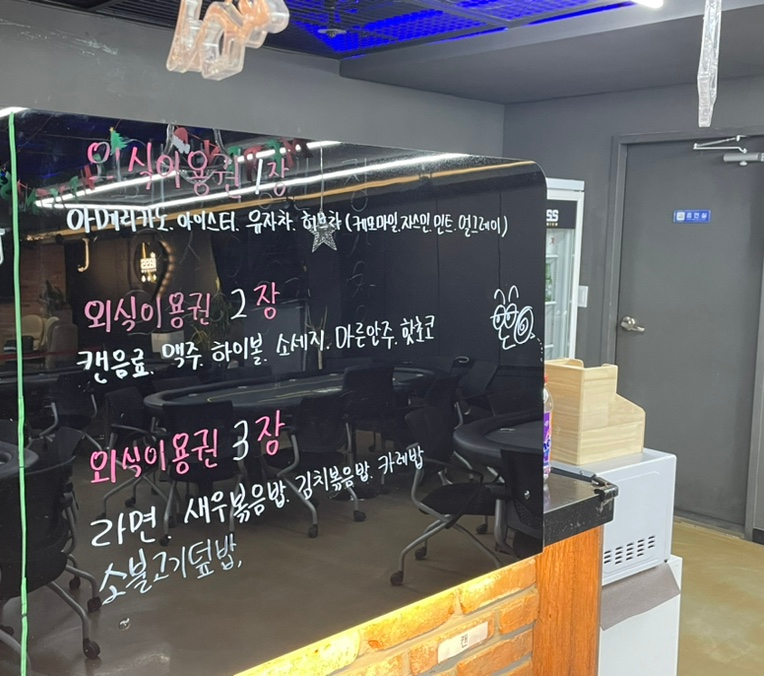 외식이용권 1장
아메리카노. 아이스티. 유자차. 허브차 (캐모마일.자스민.민트.얼그레이)
외식이용권 2장
캔음료. 맥주. 하이볼. 소세지. 마른안주. 핫초코
외식이용권 3장
라면. 새우볶음밥. 김치볶음밥. 카레밥
소불고기덮밥.
캔